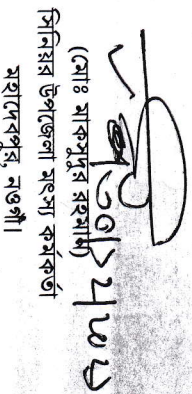 (মোঃ মাকসুদুর রহমান)
সিনিয়র উপজেলা মৎস্য কর্মকর্তা
মহাদেবপুর, নওগাঁ।